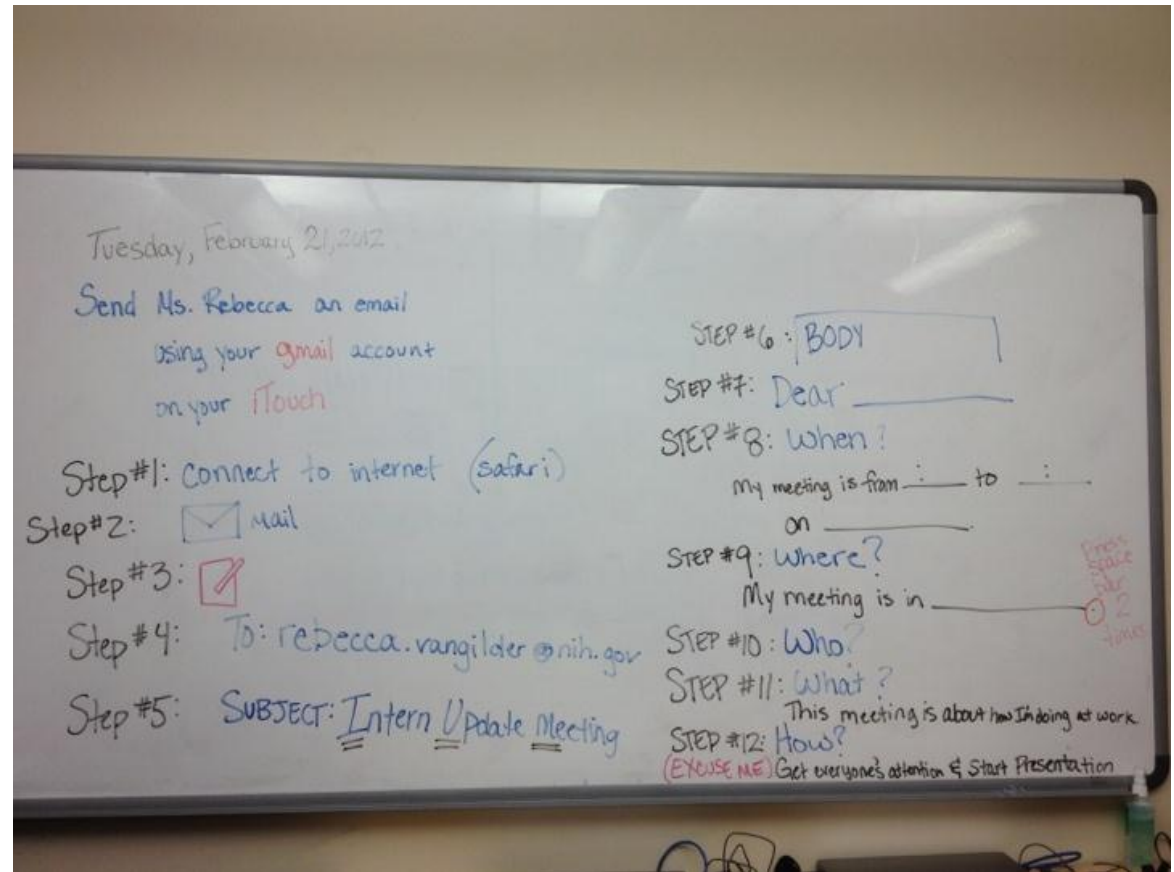 Tuesday, February 21, 2012
Send Ms. Rebecca an email
using your gmail account
on your iTouch
Step #1: connect to internet (safari)
Step #2: Mail
Step #3:
Step #4: To: rebecca.vangilder@nih.gov
Step #5: SUBJECT: Intern Update Meeting
STEP #6: BODY
STEP #7: Dear ______
STEP #8: When?
My meeting is from __:__ to __:__
on ______.
STEP #9: Where?
My meeting is in ______.
Press
space
bar
2
times
STEP #10: Who?
STEP #11: What?
This meeting is about how I'm doing at work
STEP #12: How?
(EXCUSE ME) Get everyone's attention & Start Presentation